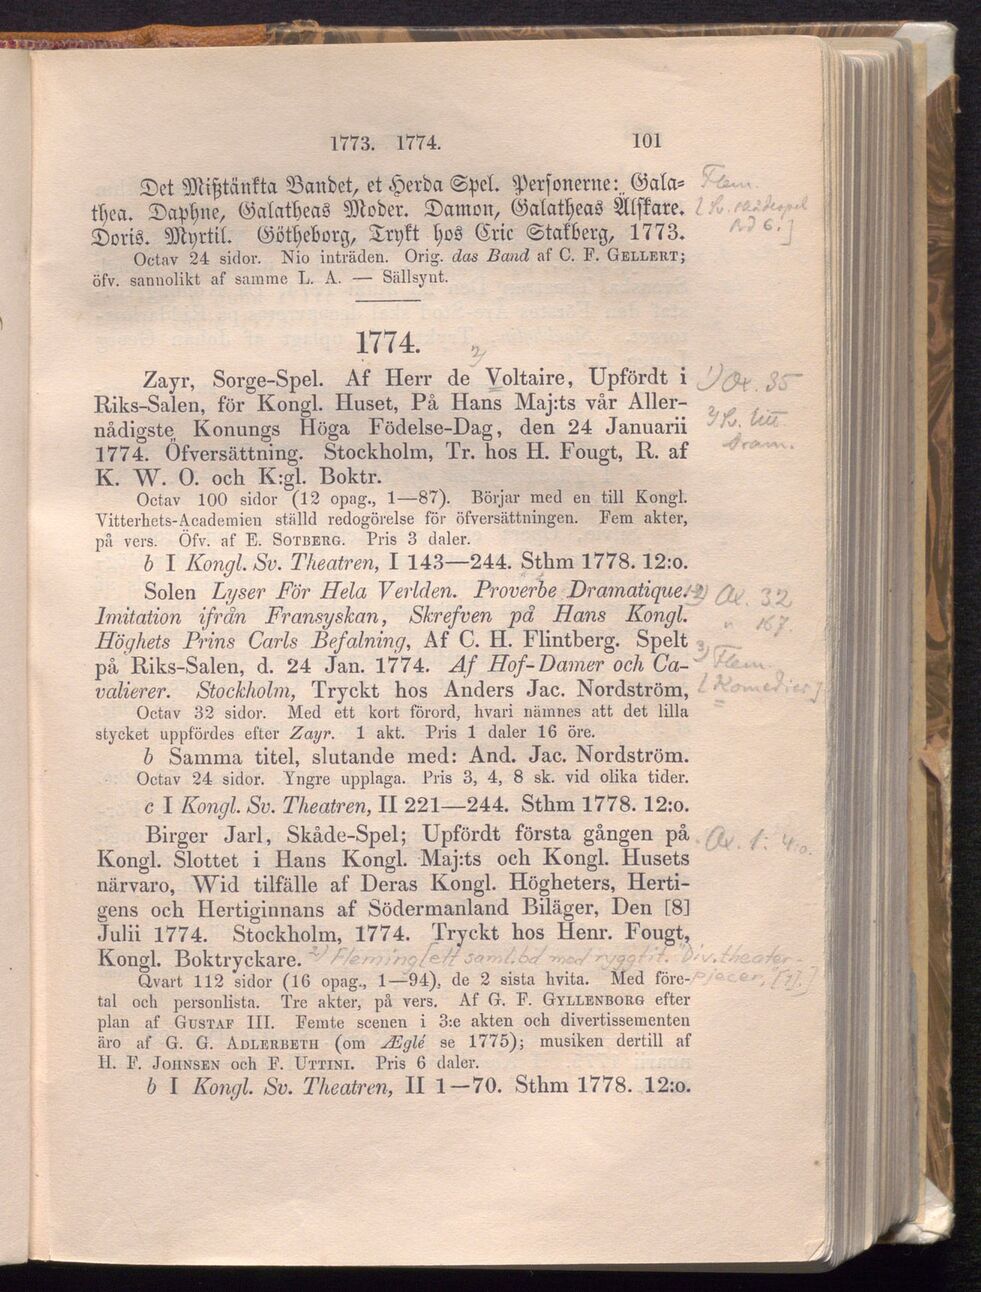 1773. 1774. 101
Det Mißtänkta Bandet, et Herda Spel. Personerne: Gala-
thea. Daphne, Galatheas Moder. Damon, Galatheas Älskare.
Doris. Myrtil. Götheborg, Trykt hos Eric Stafberg, 1773.
Octav 24 sidor. Nio inträden. Orig. das Band af C. F. GELLERT;
öfv. sannolikt af samme L. A. — Sällsynt.
Flem.
1774.
Zayr, Sorge-Spel. Af Herr de Voltaire, Upfördt i
Riks-Salen, för Kongl. Huset, På Hans Maj:ts vår Aller-
nådigste Konungs Höga Födelse-Dag, den 24 Januarii
1774. Öfversättning. Stockholm, Tr. hos H. Fougt, R. af
K. W. O. och K:gl. Boktr.
1) Ox. 35
Dram.
Octav 100 sidor (12 opag., 1—87). Börjar med en till Kongl.
Vitterhets-Academien ställd redogörelse för öfversättningen. Fem akter,
på vers. Öfv. af E. SOTBERG. Pris 3 daler.
b I Kongl. Sv. Theatren, I 143—244. Sthm 1778. 12:o.
Solen Lyser För Hela Verlden. Proverbe Dramatique.
Imitation ifrån Fransyskan, Skrefven på Hans Kongl.
Höghets Prins Carls Befalning, Af C. H. Flintberg. Spelt
på Riks-Salen, d. 24 Jan. 1774. Af Hof-Damer och Ca-
valierer. Stockholm, Tryckt hos Anders Jac. Nordström,
Ox. 32
167
3) Flem.
[Komedier]
Octav 32 sidor. Med ett kort förord, hvari nämnes att det lilla
stycket uppfördes efter Zayr. 1 akt. Pris 1 daler 16 öre.
b Samma titel, slutande med: And. Jac. Nordström.
Octav 24 sidor. Yngre upplaga. Pris 3, 4, 8 sk. vid olika tider.
c I Kongl. Sv. Theatren, II 221—244. Sthm 1778. 12:o.
Birger Jarl, Skåde-Spel; Upfördt första gången på
Kongl. Slottet i Hans Kongl. Maj:ts och Kongl. Husets
närvaro, Wid tilfälle af Deras Kongl. Högheters, Herti-
gens och Hertiginnans af Södermanland Biläger, Den [8]
Julii 1774. Stockholm, 1774. Tryckt hos Henr. Fougt,
Kongl. Boktryckare.
Ox. 1: 4:o.
2) Fleming [ett saml.bd med ryggtit. "Div. theater-
pjecer, [1].]
Qvart 112 sidor (16 opag., 1—94), de 2 sista hvita. Med före-
tal och personlista. Tre akter, på vers. Af G. F. GYLLENBORG efter
plan af GUSTAF III. Femte scenen i 3:e akten och divertissementen
äro af G. G. ADLERBETH (om Æglé se 1775); musiken dertill af
H. F. JOHNSEN och F. UTTINI. Pris 6 daler.
b I Kongl. Sv. Theatren, II 1—70. Sthm 1778. 12:o.